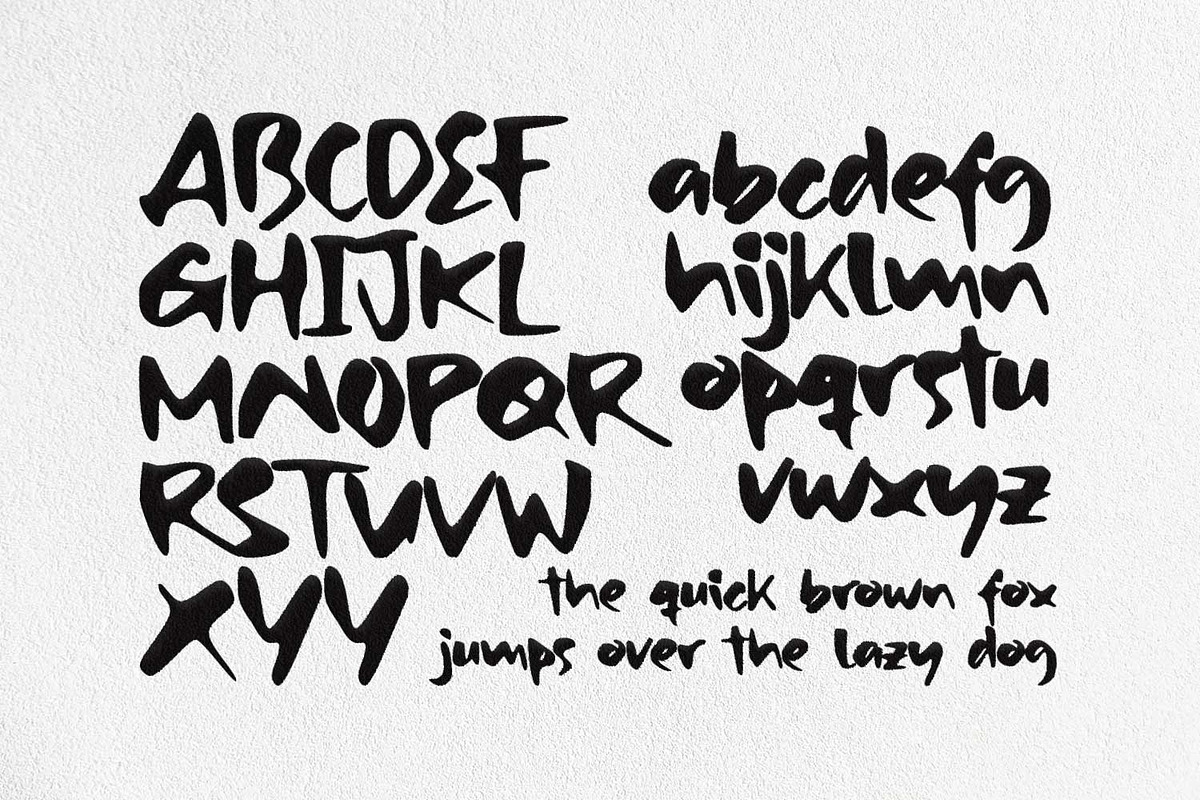 ABCDEF
GHIJKL
MNOPQR
RSTUVW
XYY
abcdefg
hijklmn
opqrstu
vwxyz
the quick brown fox
jumps over the lazy dog